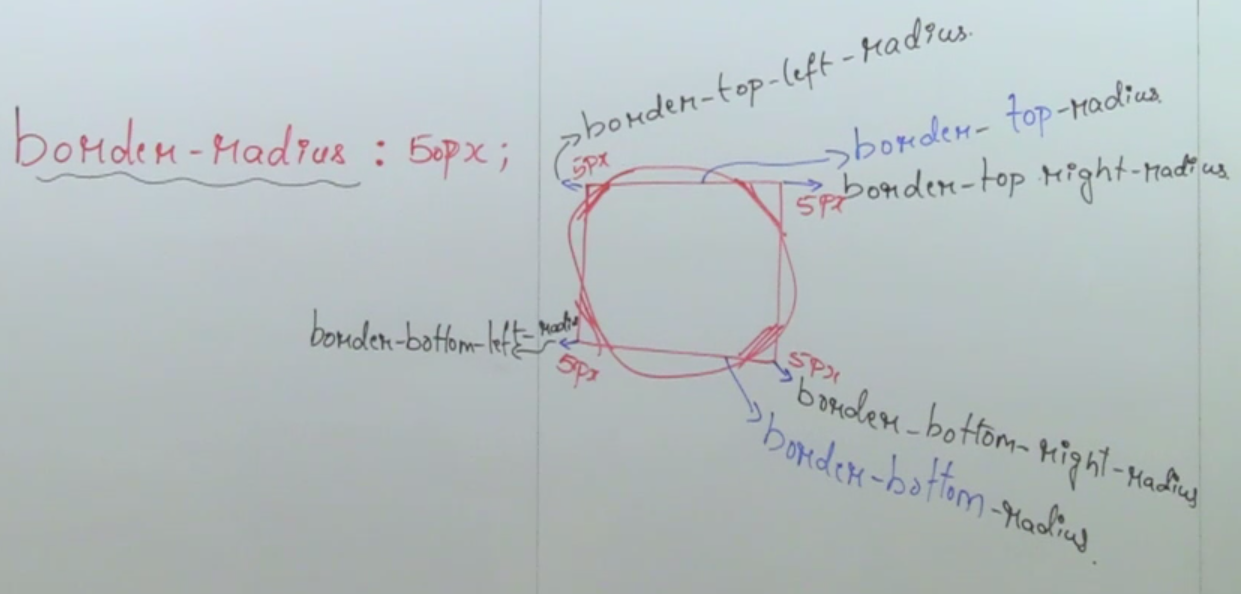 border-top-left-radius.
border-radius : 50px;
border-top-radius.
5px
border-top right-radius
5px
border-bottom-left-radius
5px
5px
border-bottom-right-radius
border-bottom-radius.